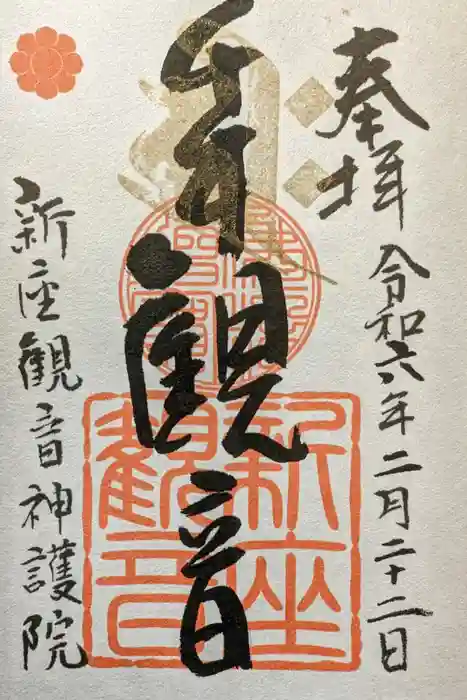 奉拝
令和六年二月二十二日
千手観音
新座観音神護院
新座
観音